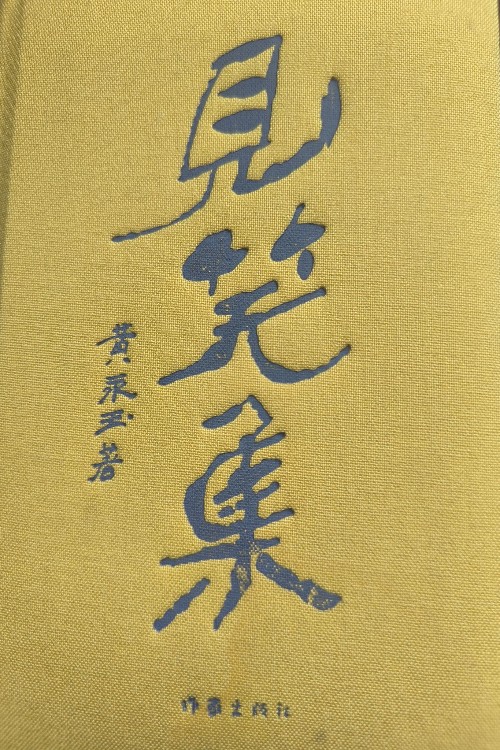 見笑集
黄永玉著
作家出版社